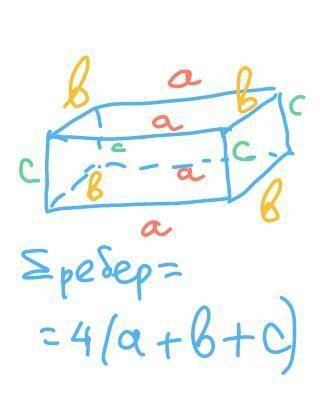 a
в в
a c
c c c
в a
в
a
Σребер=
=4(a+в+c)